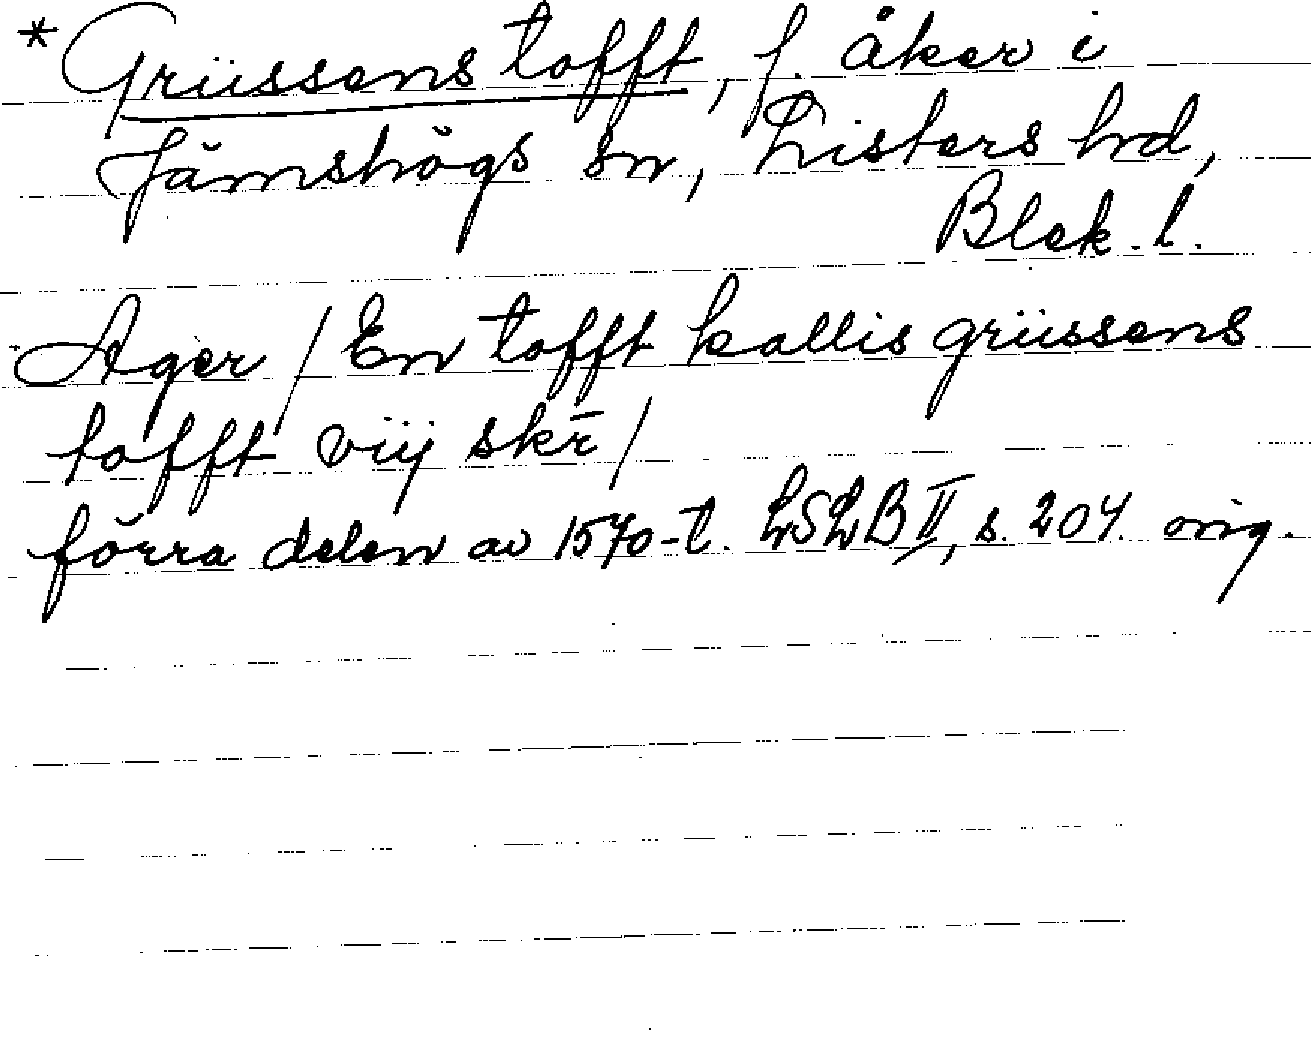 * Grüssens tofft, f. åker i
Jämshögs sn, Listers hd,
Blek. l.
Ager / En tofft kallis grüssens
tofft viij skr̄ /
förra delen av 1570-t. LSLB II, s. 204. orig.